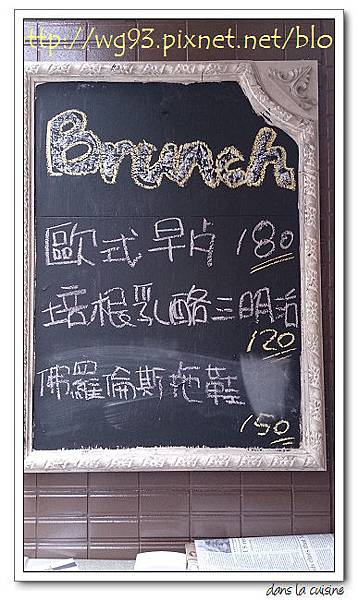 ttp://wg93.pixnet.net/blo
Brunch
歐式早点 180
培根乳酪三明治
120
佛羅倫斯拖鞋
150
dans la cuisine